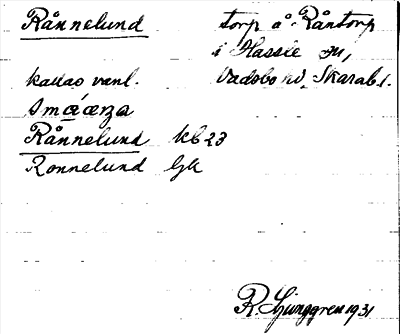 Rånnelund torp å Råntorp
i Hassle sn,
kallas vanl. Vadsbo hd, Skarab.l.
Smáarna
Rånnelund kb 23
Ronnelund Gk
R. Ljunggren 1931